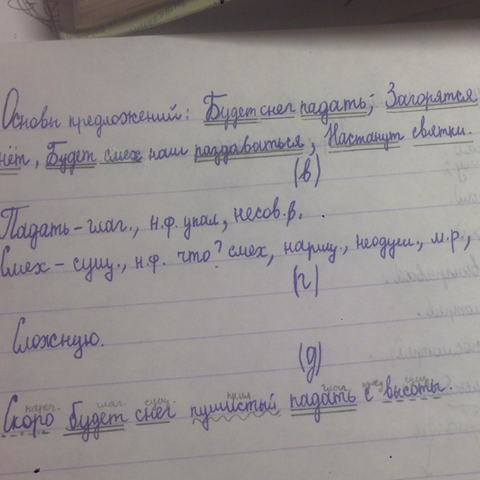 Основы предложений: Будет снег падать; Загорятся
нёт, Будет смех наш раздаваться, Настанут святки.
(в)
Падать – глаг., н.ф. упал, несов.в,.
Смех – сущ., н.ф. что? смех, нариц., неодуш., м.р.,
(г)
Сложную.
(д)
нареч. глаг. сущ. прил. глаг. пред. сущ.
Скоро будет снег пушистый падать с высоты.